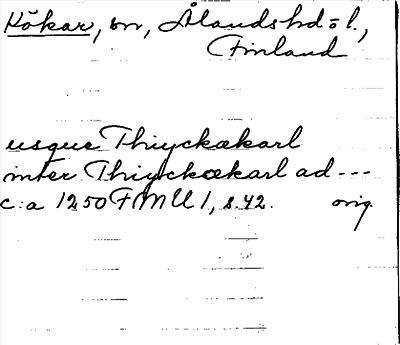 Kökar, sn, Ålands hd o l.,
Finland
usque Thiyckækarl
inter Thiyckækarl ad ---
c:a 1250 FMU 1, s. 42. orig.